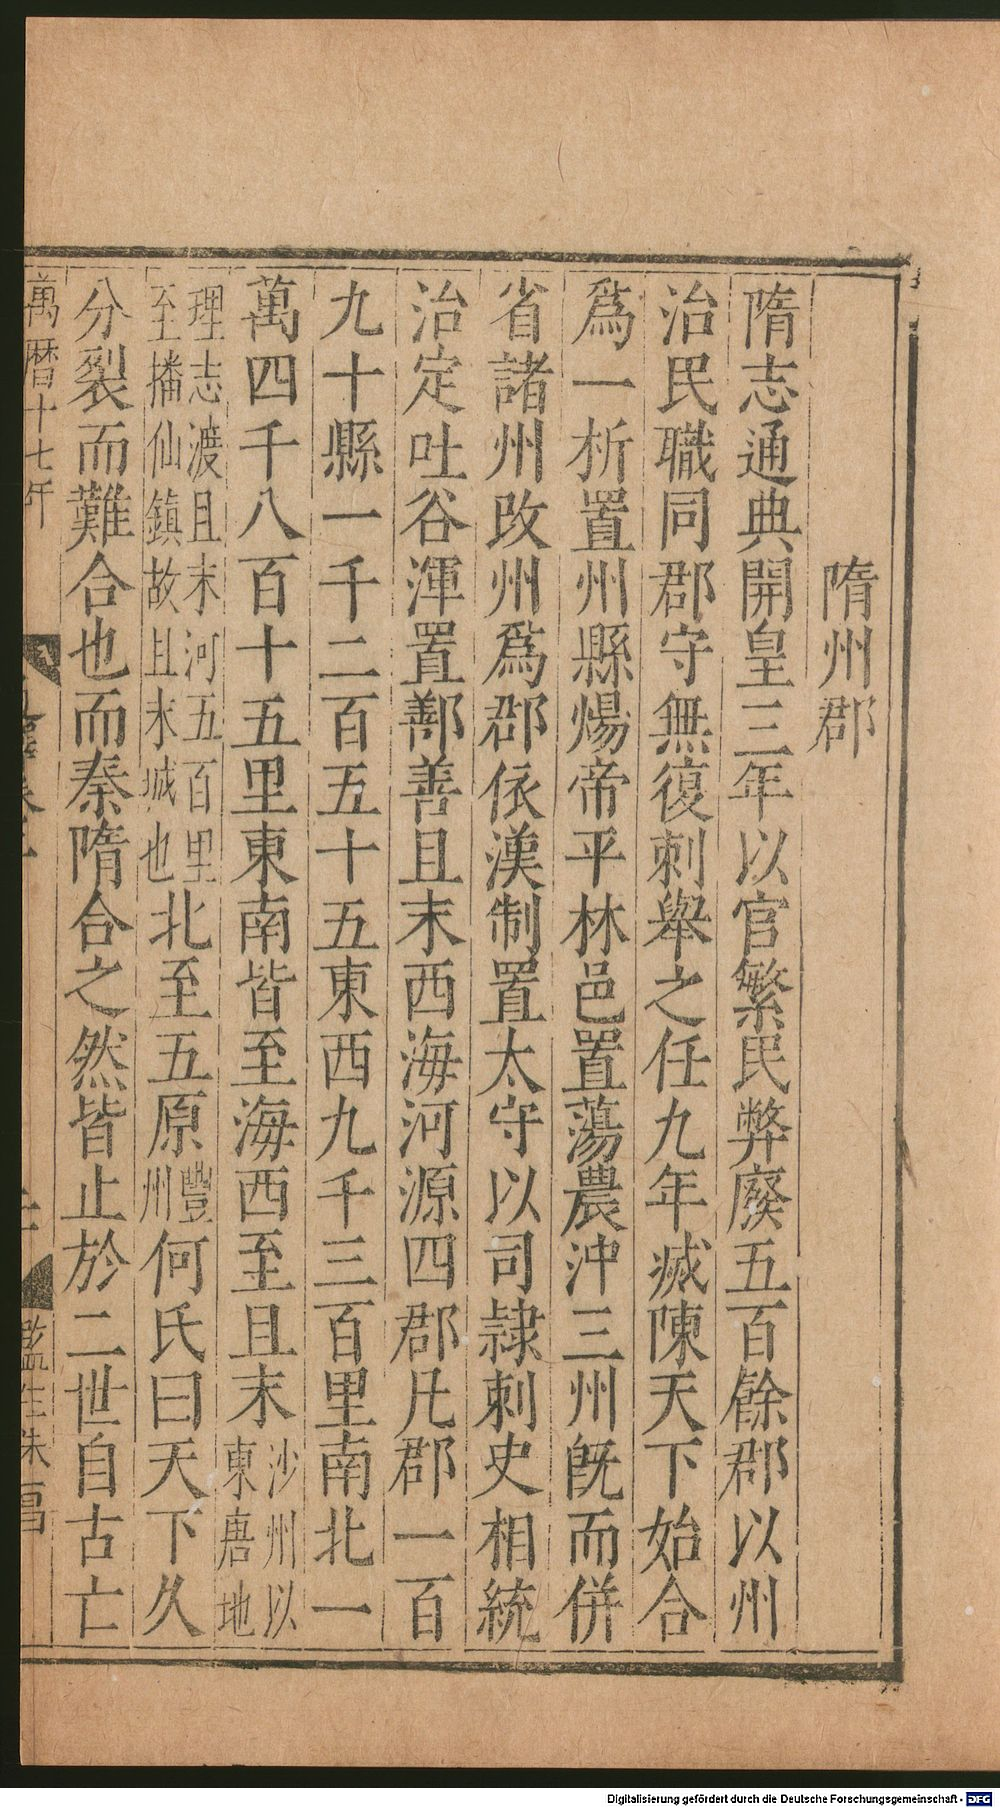 隋州郡
隋志通典開皇三年以官繁民弊廢五百餘郡以州
治民職同郡守無復刺舉之任九年㓕陳天下始合
爲一析置州縣煬帝平林邑置蕩農沖三州旣而併
省諸州改州爲郡依漢制置太守以司隷刺史相統
治定吐谷渾置鄯善且末西海河源四郡凡郡一百
九十縣一千二百五十五東西九千三百里南北一
萬四千八百十五里東南皆至海西至且末沙州以東唐地
理志渡且末河五百里至播仙鎮故且末城也北至五原豐州何氏曰天下久
分裂而難合也而秦隋合之然皆止於二世自古亡
萬曆十七年
監生朱
Digitalisierung gefördert durch die Deutsche Forschungsgemeinschaft - DFG